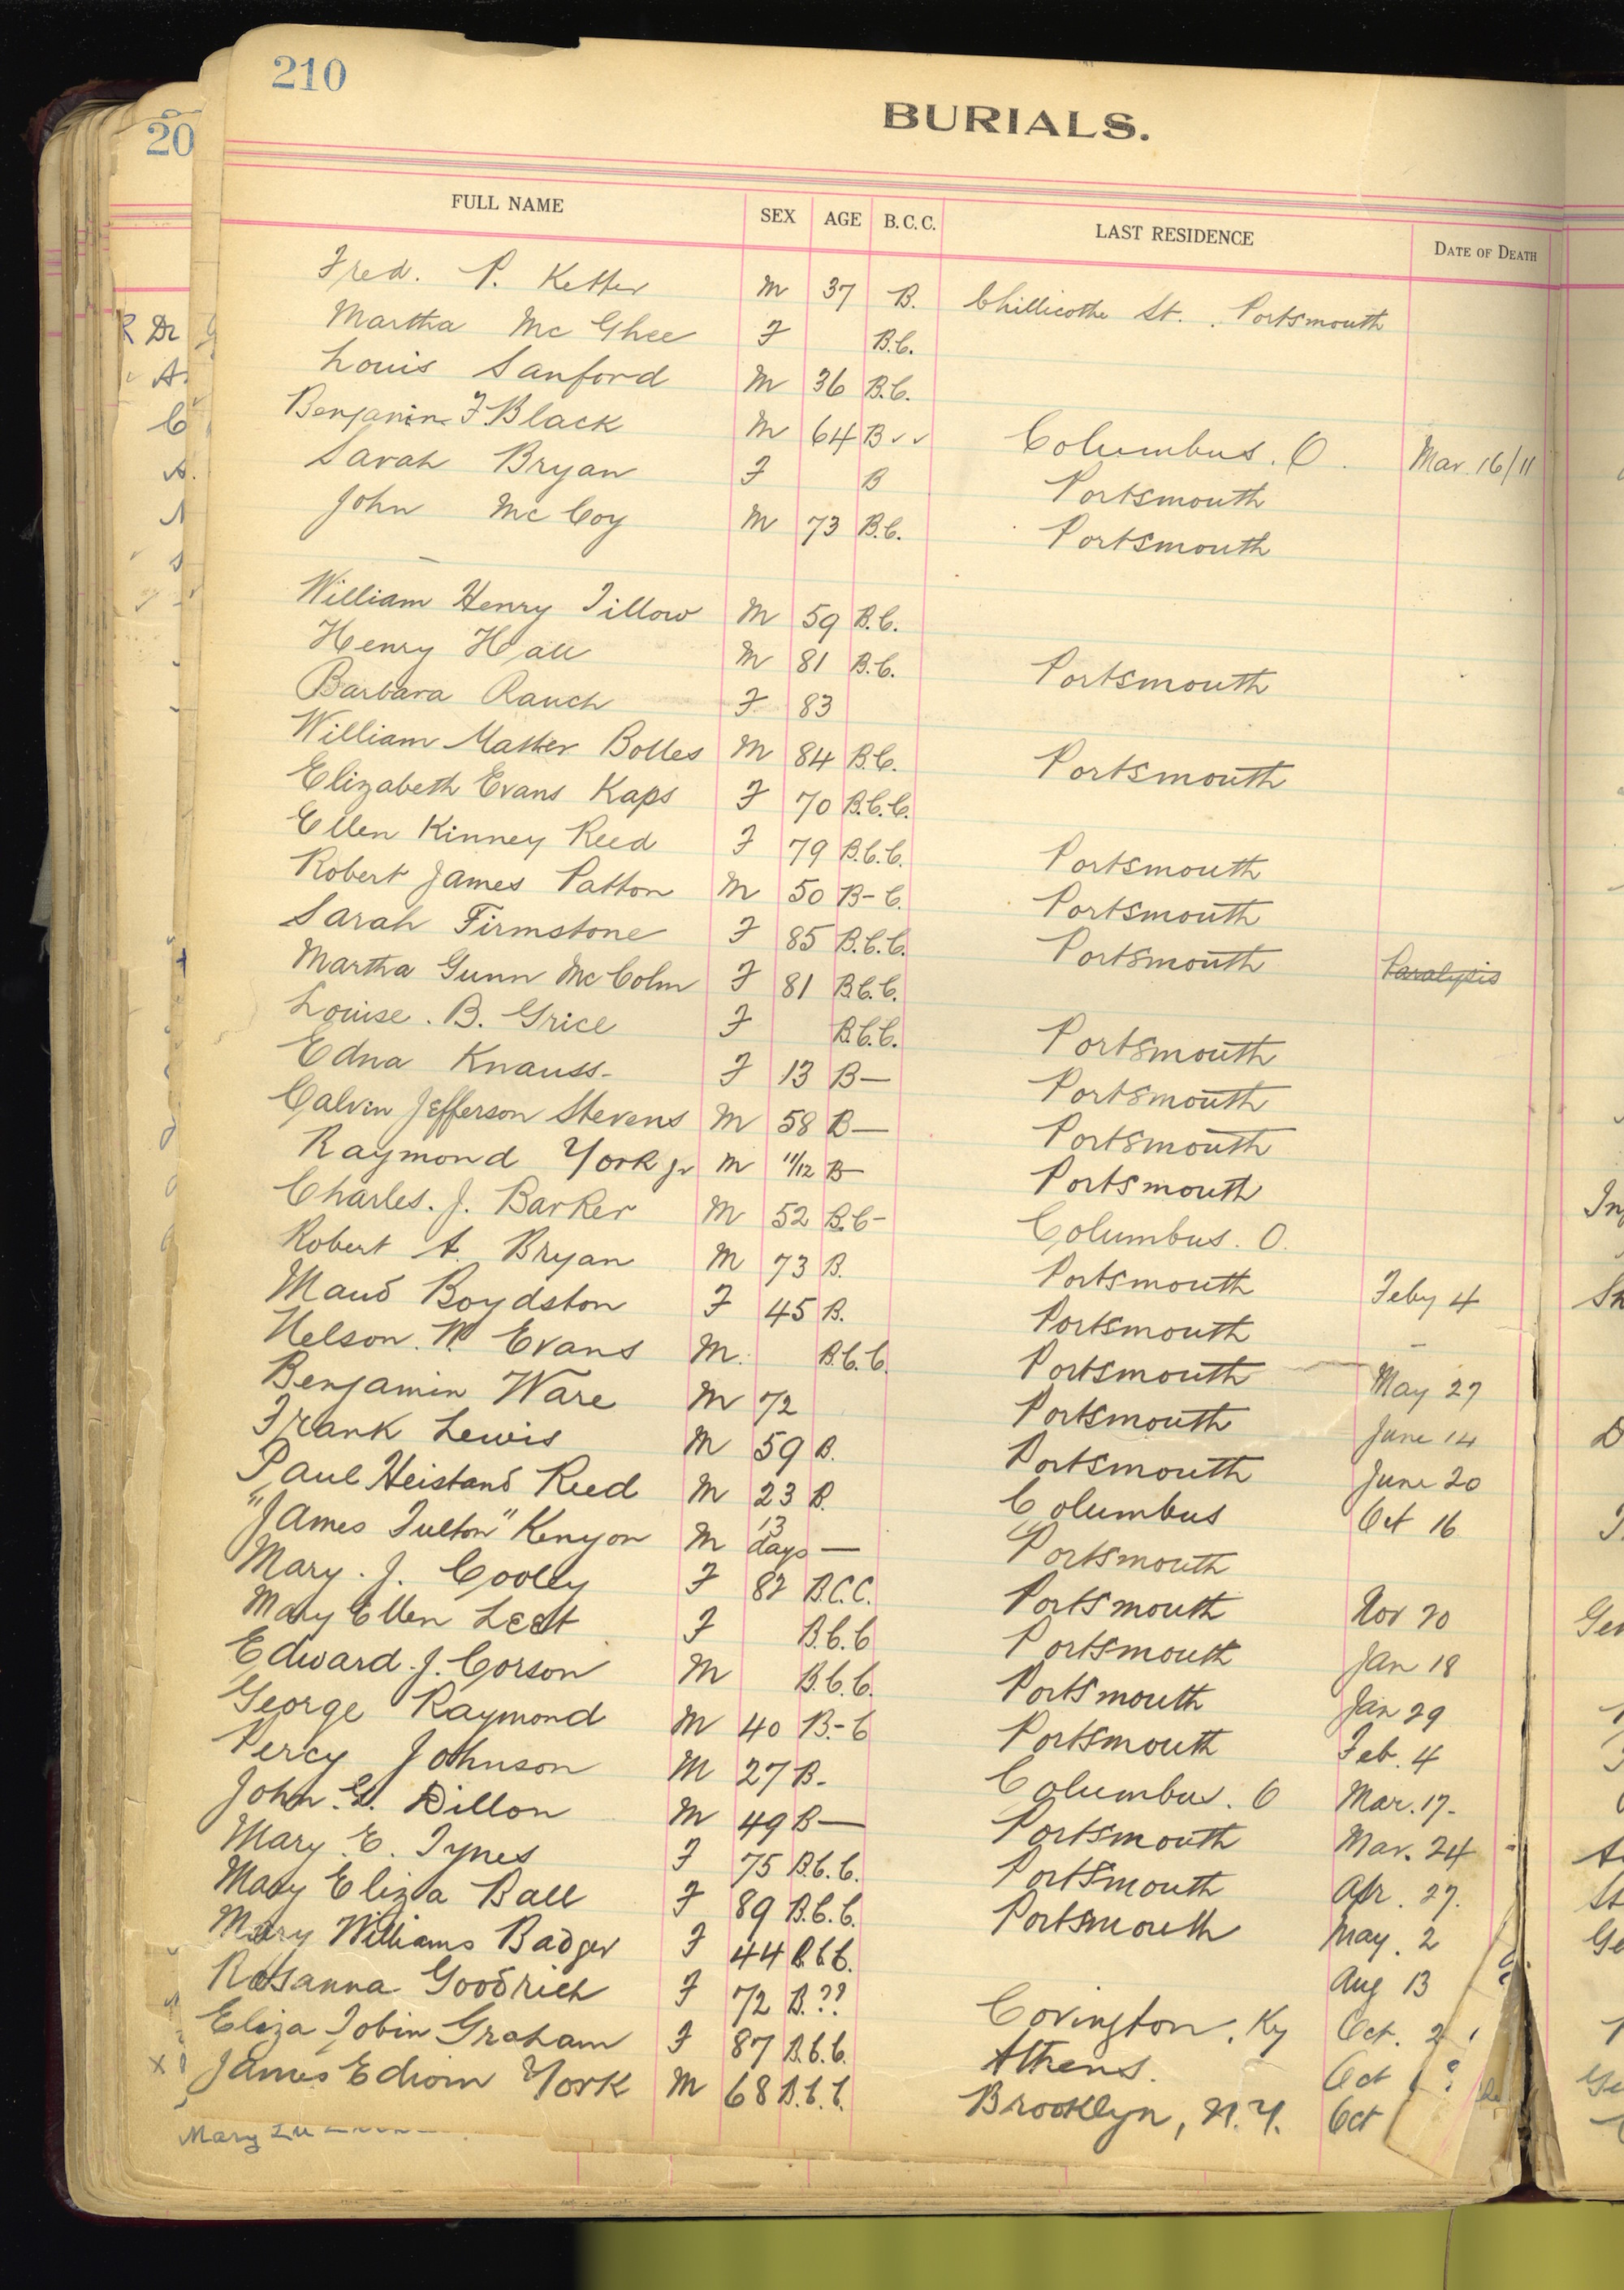 210
BURIALS.
20
FULL NAME SEX AGE B.C.C. LAST RESIDENCE DATE OF DEATH
Fred. P. Ketter M 37 B. Chillicothe St. Portsmouth
Martha McGhee F B.C.
Louis Sanford M 36 B.C.
Benjamin F. Black M 64 B ✓ ✓ Columbus. O. Mar. 16/11
Sarah Bryan F B Portsmouth
John McCoy M 73 B.C. Portsmouth
William Henry Tillow M 59 B.C.
Henry Hall M 81 B.C. Portsmouth
Barbara Rauch F 83
William Mather Bolles M 84 B.C. Portsmouth
Elizabeth Evans Kaps F 70 B.C.C.
Ellen Kinney Reed F 79 B.C.C. Portsmouth
Robert James Patton M 50 B-C. Portsmouth
Sarah Firmstone F 85 B.C.C. Portsmouth Paralysis
Martha Gunn McColm F 81 B.C.C.
Louise. B. Grice F B.C.C. Portsmouth
Edna Knauss- F 13 B— Portsmouth
Calvin Jefferson Stevens M 58 B— Portsmouth
Raymond York Jr M 11/12 B— Portsmouth
Charles. J. Barker M 52 B.C- Columbus. O.
Robert A. Bryan M 73 B. Portsmouth Feby 4
Maud Boydston F 45 B. Portsmouth —
Nelson. W. Evans M. B.C.C. Portsmouth May 27
Benjamin Ware M 72 Portsmouth June 14
Frank Lewis M 59 B. Portsmouth June 20
Paul Heistand Reed M 23 B. Columbus Oct 16
"James Fulton" Kenyon M 13 days — Portsmouth
Mary. J. Cooley F 82 B.C.C. Portsmouth Nov 20
Mary Ellen Leet F B.C.C Portsmouth Jan 18
Edward. J. Corson M B.C.C. Portsmouth Jan 29
George Raymond M 40 B.-C Portsmouth Feb. 4
Percy Johnson M 27 B- Columbus. O Mar. 17-
John. G. Dillon M 49 B— Portsmouth Mar. 24
Mary. E. Tynes F 75 B.C.C. Portsmouth Apr. 27.
Mary Eliza Ball F 89 B.C.C. Portsmouth May. 2
Mary Williams Badger F 44 B.C.C. Aug 13
Rosanna Goodrich F 72 B.?? Covington, Ky Oct. 2
Eliza Tobin Graham F 87 B.C.C. Athens. Oct
James Edwin York M 68 B.C.C. Brooklyn, N.Y. Oct
Mary